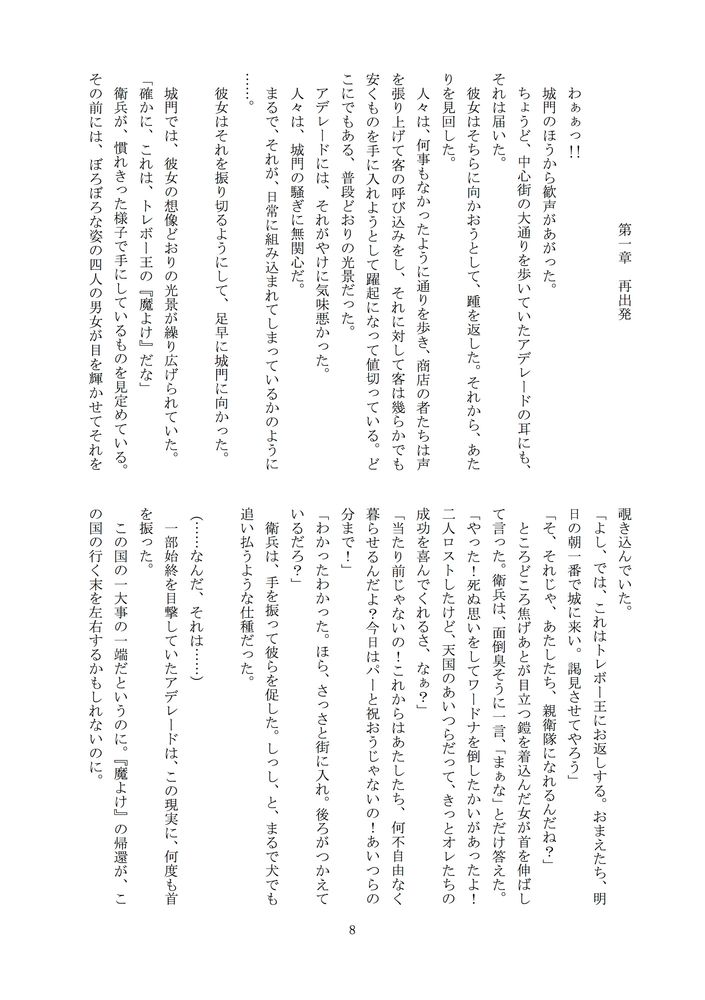 第一章　再出発
わぁぁっ!!
城門のほうから歓声があがった。
ちょうど、中心街の大通りを歩いていたアデレードの耳にも、
それは届いた。
彼女はそちらに向かおうとして、踵を返した。それから、あた
りを見回した。
人々は、何事もなかったように通りを歩き、商店の者たちは声
を張り上げて客の呼び込みをし、それに対して客は幾らかでも
安くものを手に入れようとして躍起になって値切っている。ど
こにでもある、普段どおりの光景だった。
アデレードには、それがやけに気味悪かった。
人々は、城門の騒ぎに無関心だ。
まるで、それが、日常に組み込まれてしまっているかのように
……。
彼女はそれを振り切るようにして、足早に城門に向かった。
城門では、彼女の想像どおりの光景が繰り広げられていた。
「確かに、これは、トレボー王の『魔よけ』だな」
衛兵が、慣れきった様子で手にしているものを見定めている。
その前には、ぼろぼろな姿の四人の男女が目を輝かせてそれを
覗き込んでいた。
「よし、では、これはトレボー王にお返しする。おまえたち、明
日の朝一番で城に来い。謁見させてやろう」
「そ、それじゃ、あたしたち、親衛隊になれるんだね？」
ところどころ焦げあとが目立つ鎧を着込んだ女が首を伸ばし
て言った。衛兵は、面倒臭そうに一言、「まぁな」とだけ答えた。
「やった！死ぬ思いをしてワードナを倒したかいがあったよ！
二人ロストしたけど、天国のあいつらだって、きっとオレたちの
成功を喜んでくれるさ、なぁ？」
「当たり前じゃないの！これからはあたしたち、何不自由なく
暮らせるんだよ？今日はパーと祝おうじゃないの！あいつらの
分まで！」
「わかったわかった。ほら、さっさと街に入れ。後ろがつかえて
いるだろ？」
衛兵は、手を振って彼らを促した。しっし、と、まるで犬でも
追い払うような仕種だった。
（……なんだ、それは……）
一部始終を目撃していたアデレードは、この現実に、何度も首
を振った。
この国の一大事の一端だというのに。『魔よけ』の帰還が、こ
の国の行く末を左右するかもしれないのに。
8